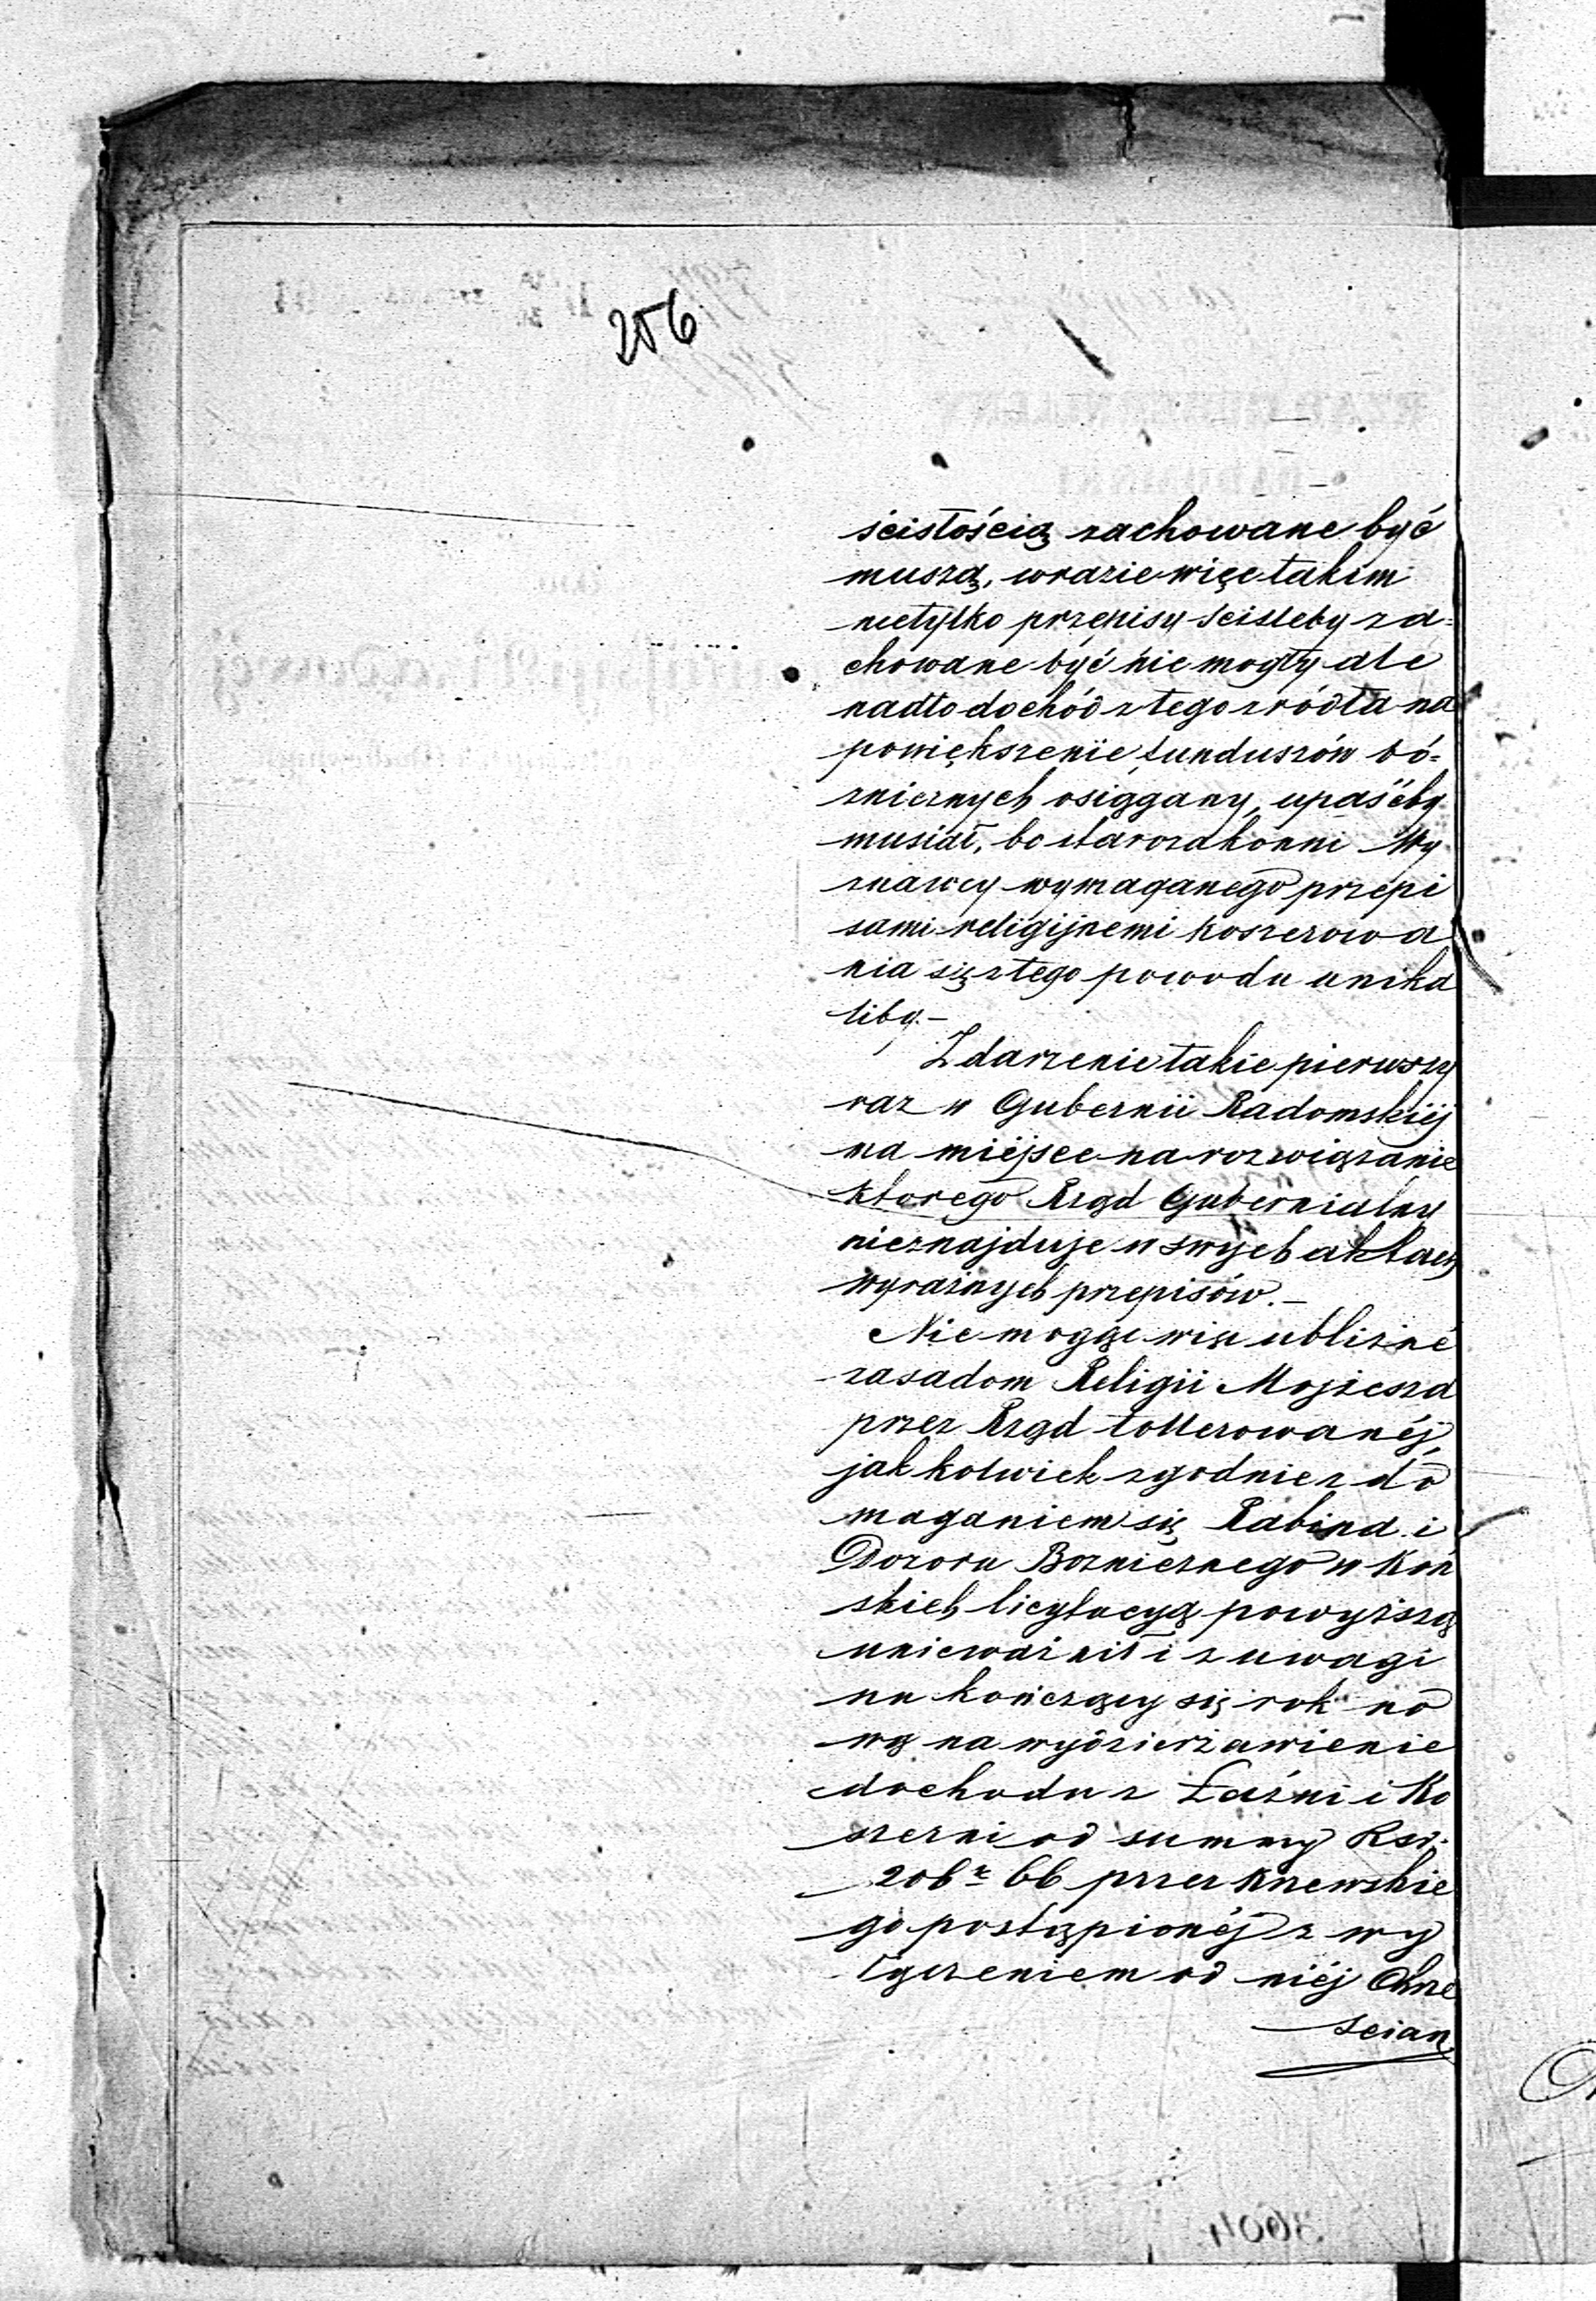 256
ścisłością zachowane być
muszą, wrazie więc takim
nietylko przepisy ściśleby za=
chowane być nie mogły ale
nadto dochód z tego zródła na
powiększenie funduszów bó=
zniczych osiągany, upaśćby
musiał, bo starozakonni Wy
znawcy wymaganego przepi
sami religijnemi koszerowa
nia się z tego powodu unika
liby.—
Zdarzenie takie pierwszy
raz w Gubernii Radomskiéj
ma miéjsce na rozwiązanie
ktorego Rząd Gubernialny
nieznajduje w swych aktach
wyraźnych przepisów.—
Nie mogąc więc ubliżać
zasadom Religii Mojżesza
przez Rząd tollerowanéj,
jakkolwiek zgodnie z do
maganiem się Rabina i
Dozoru Bozniczego w Koń
skich licytacyą powyższą
unieważnił i z uwagi
na kończący się rok no
wą na wydzierżawienie
dochodu z Łaźni i Ko
szerni od summy Rsr.
206 k 66 przez Knewskie
go postąpionéj z wy
łączeniem od niéj Chrze
ścian